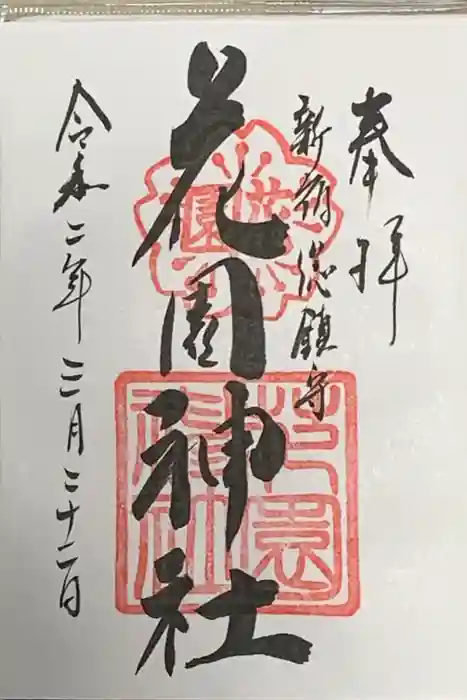 奉拝
新宿総鎮守
花園神社
令和二年三月二十二日
花園
花園神社